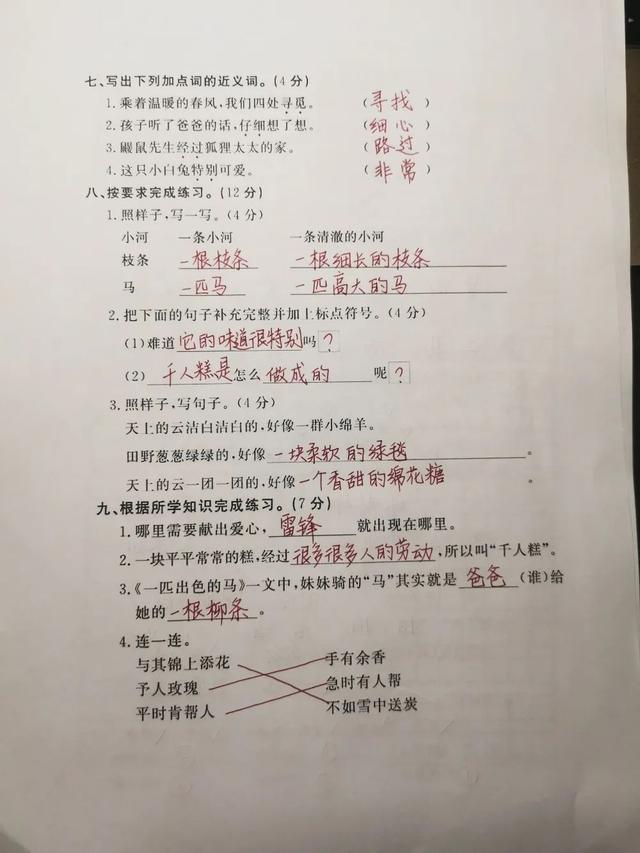 七、写出下列加点词的近义词。(4分)
1.乘着温暖的春风,我们四处寻觅。 (寻找)
2.孩子听了爸爸的话,仔细想了想。 (细心)
3.鼹鼠先生经过狐狸太太的家。 (路过)
4.这只小白兔特别可爱。 (非常)
八、按要求完成练习。(12分)
1.照样子,写一写。(4分)
小河 一条小河 一条清澈的小河
枝条 一根枝条 一根细长的枝条
马 一匹马 一匹高大的马
2.把下面的句子补充完整并加上标点符号。(4分)
(1)难道它的味道很特别吗?
(2)千人糕是怎么做成的呢?
3.照样子,写句子。(4分)
天上的云洁白洁白的,好像一群小绵羊。
田野葱葱绿绿的,好像一块柔软的绿毯。
天上的云一团一团的,好像一个香甜的绵花糖。
九、根据所学知识完成练习。(7分)
1.哪里需要献出爱心,雷锋就出现在哪里。
2.一块平平常常的糕,经过很多很多人的劳动,所以叫“千人糕”。
3.《一匹出色的马》一文中,妹妹骑的“马”其实就是爸爸(谁)给
她的一根柳条。
4.连一连。
与其锦上添花 手有余香
予人玫瑰 急时有人帮
平时肯帮人 不如雪中送炭